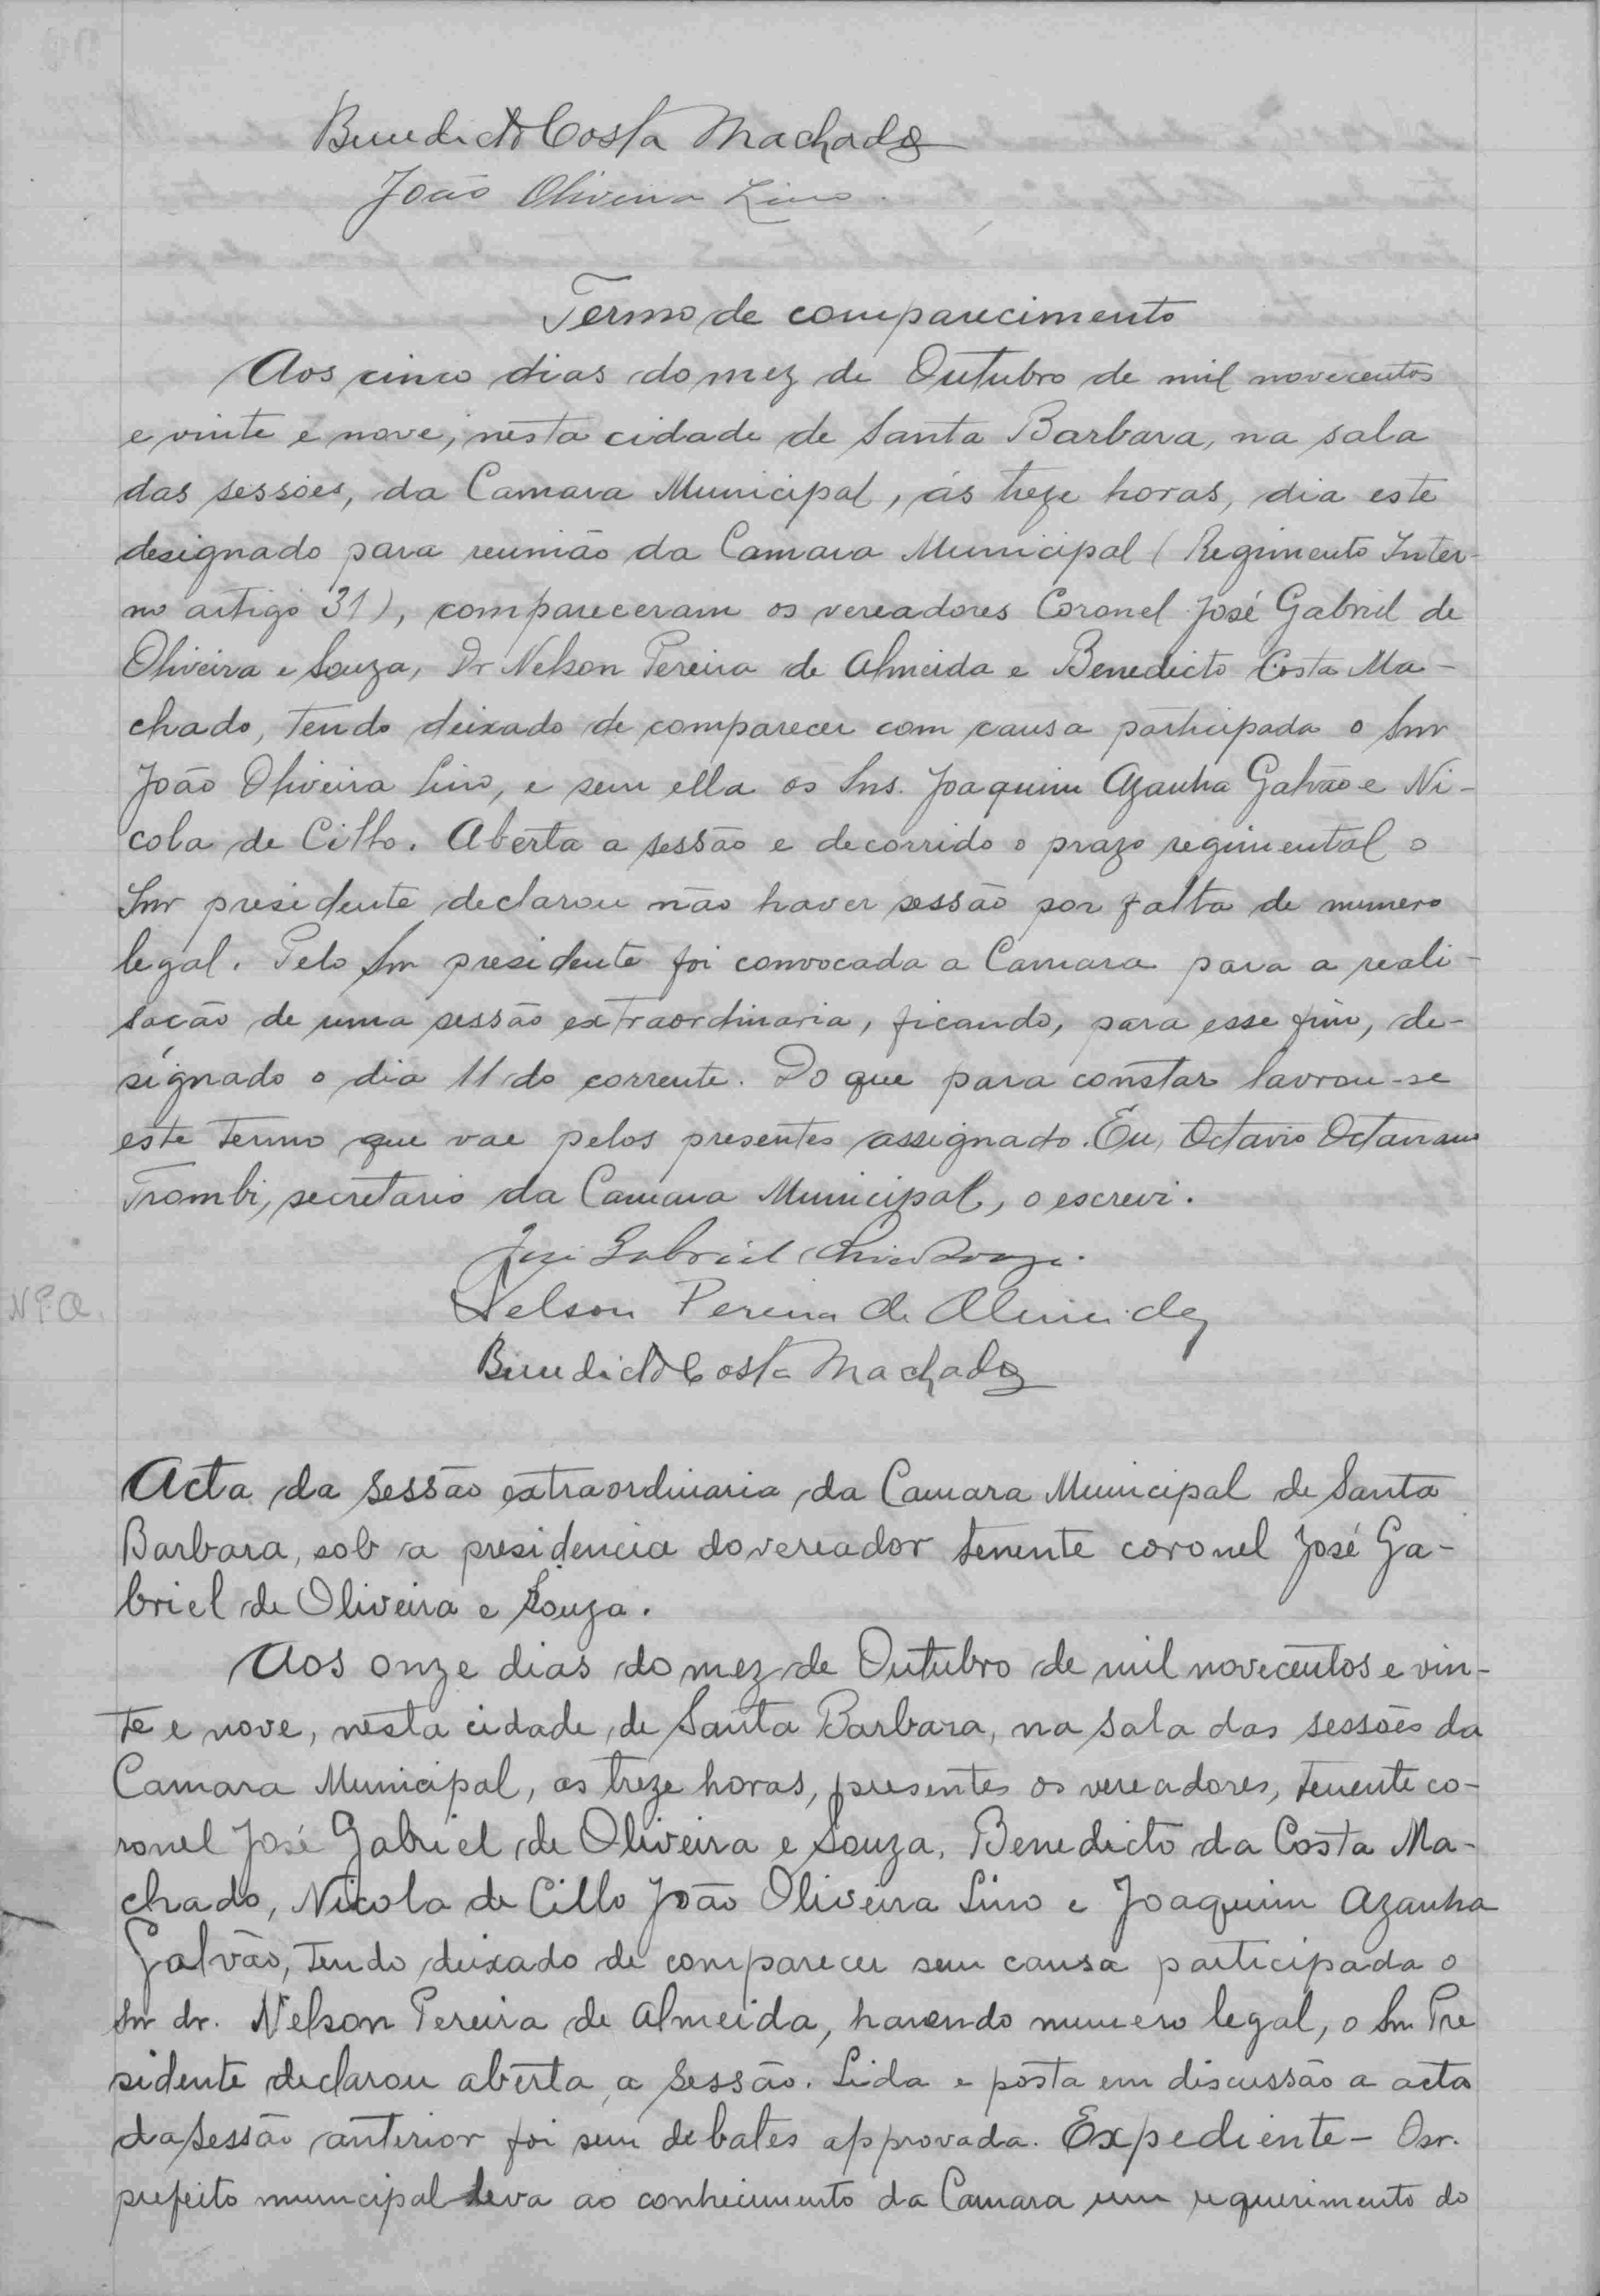 Benedicto Costa Machado
João Oliveira Lino.
Termo de comparecimento
Aos cinco dias do mez de Outubro de mil novecentos
e vinte e nove, nesta cidade de Santa Barbara, na sala
das sessões, da Camara Municipal, ás treze horas, dia este
designado para reunião da Camara Municipal (Regimento Inter-
no artigo 31), compareceram os vereadores Coronel José Gabriel de
Oliveira e Souza, Dr Nelson Pereira de Almeida e Benedicto Costa Ma-
chado, tendo deixado de comparecer com causa participada o Snr
João Oliveira Lino, e sem ella os Sns. Joaquim Azanha Galvão e Ni-
cola de Cillo. Aberta a sessão e decorrido o prazo regimental o
Snr presidente declarou não haver sessão por falta de numero
legal. Pelo Snr presidente foi convocada a Camara para a reali-
sação de uma sessão extraordinaria, ficando, para esse fim, de-
signado o dia 11 do corrente. Do que para constar lavrou-se
este termo que vae pelos presentes assignado. Eu, Octavio Octaviano
Trombi, secretario da Camara Municipal, o escrevi.
José Gabriel Oliveira Souza.
N.P.A.
Nelson Pereira de Almeida
Benedicto Costa Machado
Acta da sessão extraordinaria da Camara Municipal de Santa
Barbara, sob a presidencia do vereador tenente coronel José Ga-
briel de Oliveira e Souza.
Aos onze dias do mez de Outubro de mil novecentos e vin-
te e nove, nesta cidade de Santa Barbara, na sala das sessões da
Camara Municipal, as treze horas, presentes os vereadores, tenente co-
ronel José Gabriel de Oliveira e Souza, Benedicto da Costa Ma-
chado, Nicola de Cillo João Oliveira Lino e Joaquim Azanha
Galvão, tendo deixado de comparecer sem causa participada o
Snr dr. Nelson Pereira de Almeida, havendo numero legal, o Snr Pre
sidente declarou aberta a sessão. Lida e posta em discussão a acta
da sessão anterior foi sem debates approvada. Expediente - O sr.
prefeito municipal leva ao conhecimento da Camara um requerimento do